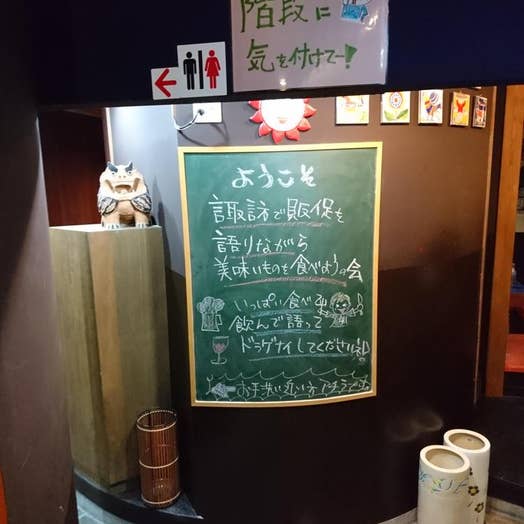 階段に
気を付けてー!
ようこそ
諏訪で販促を
語りながら
美味いものを食べようの会
いっぱい食べて
飲んで語って
ドラグナイしてください!
お手洗い